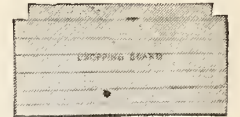 CHOPPING BOARD